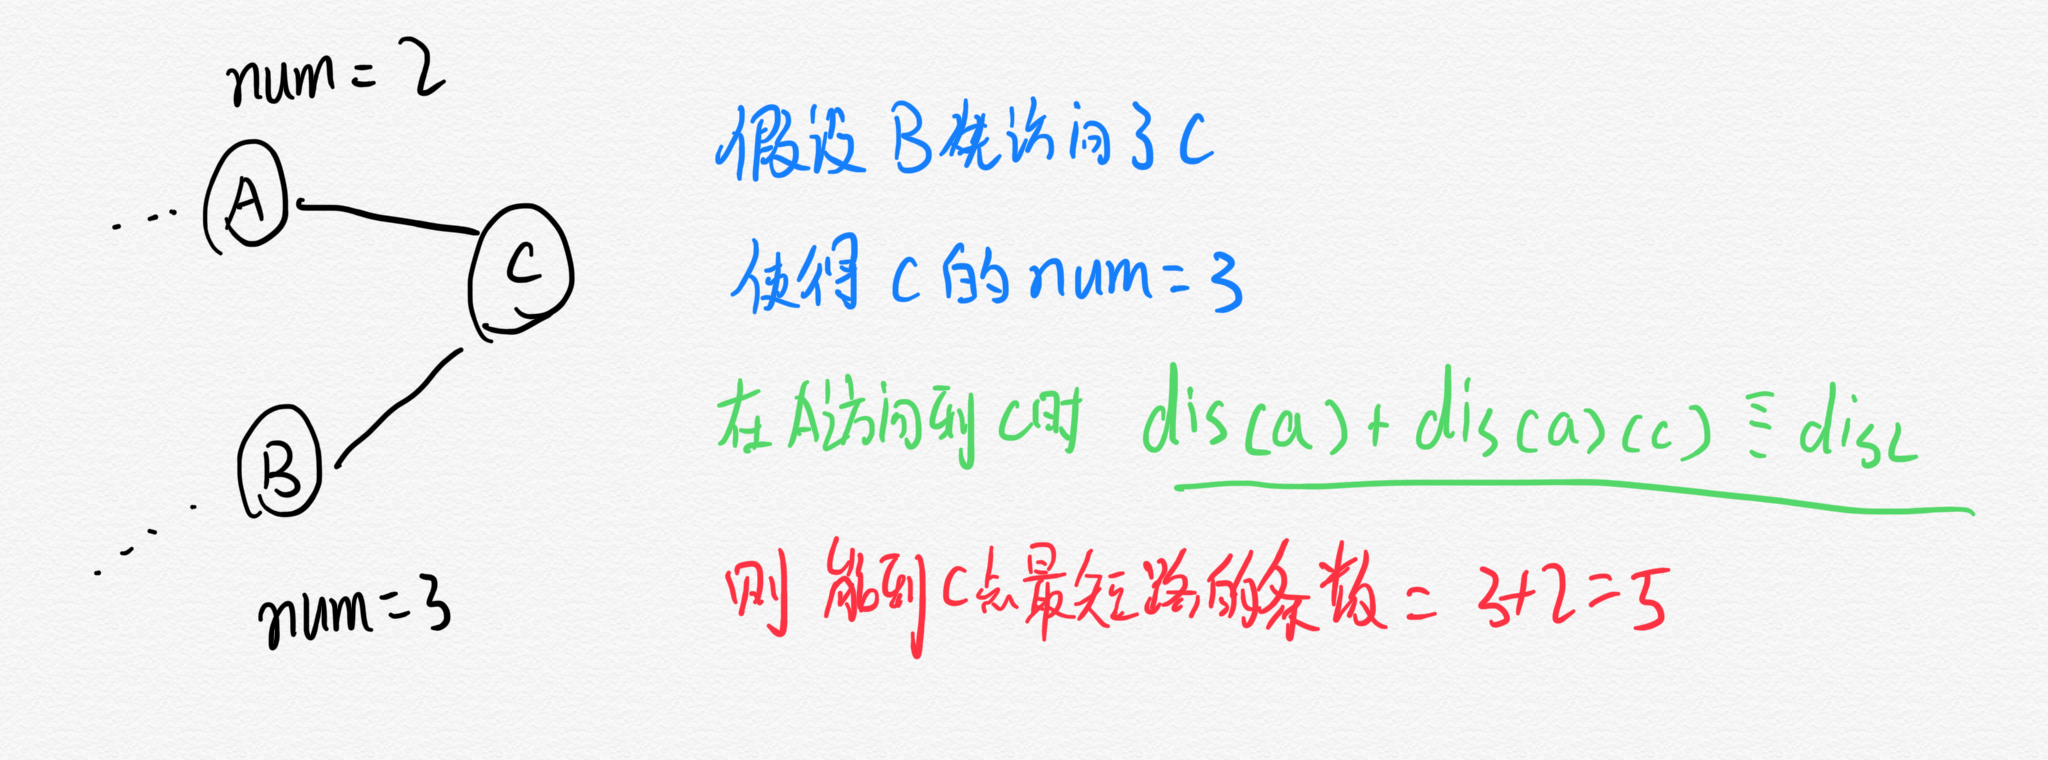 num = 2
A
C
B
num = 3
假设 B 先访问了 C
使得 C 的 num = 3
在 A 访问到 C 时 dis(a) + dis(a)(c) ≡ disc
则 能到 C 点最短路的条数 = 3+2=5